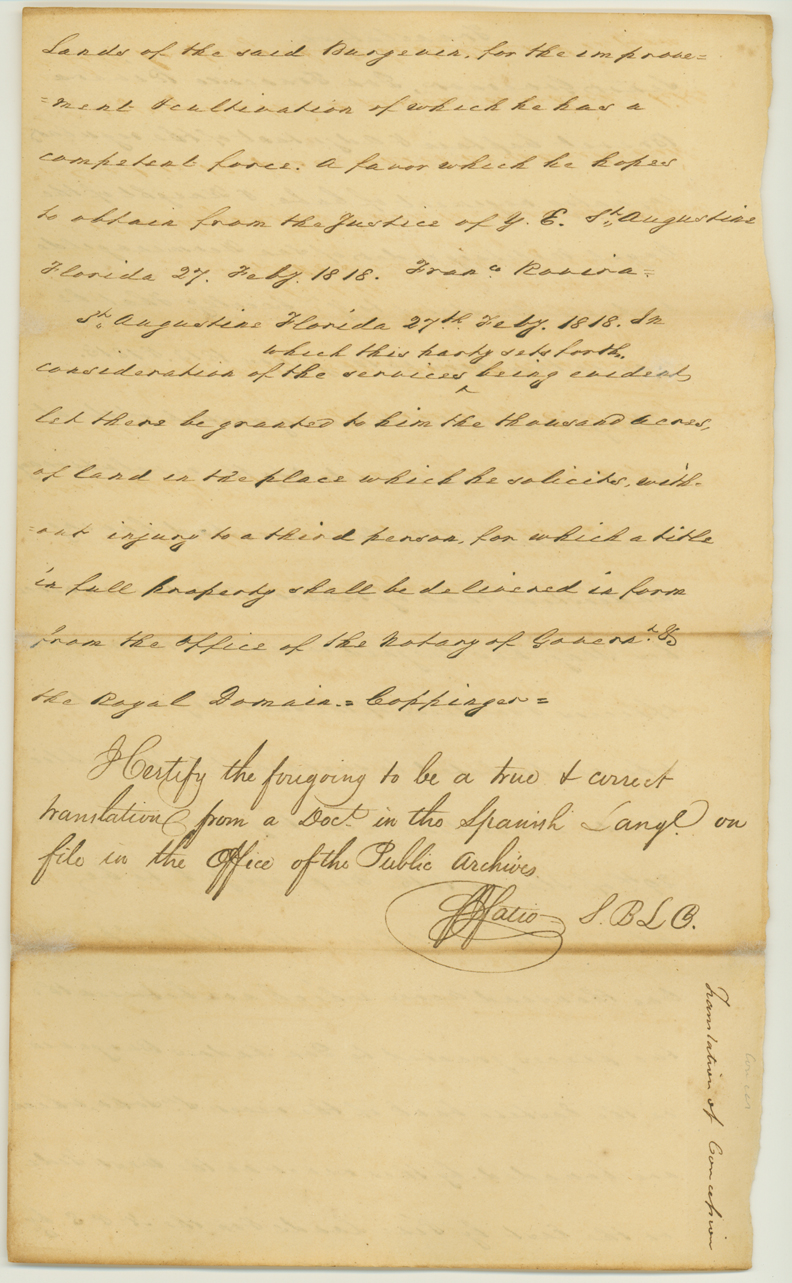 Lands of the said Burgevin, for the improve=
=ment & cultivation of which he has a
competent force. A favor which he hopes
to obtain from the Justice of Y. E. St. Augustine
Florida 27. Feby. 1818. Franco Rovira=
St. Augustine Florida 27th Feby. 1818. In
which this party sets forth.
consideration of the services ^ being evident,
let there be granted to him the thousand acres,
of land in the place which he solicits, with-
-out injury to a third person, for which a title
in full property shall be delivered in form
from the office of the Notary of Governt. &
the Royal Domain.= Coppinger=
I Certify the foregoing to be a true & correct
translation from a Doct. in the Spanish Lange. on
file in the Office of the Public Archives.
S.B.L.C.
Translation of Concession